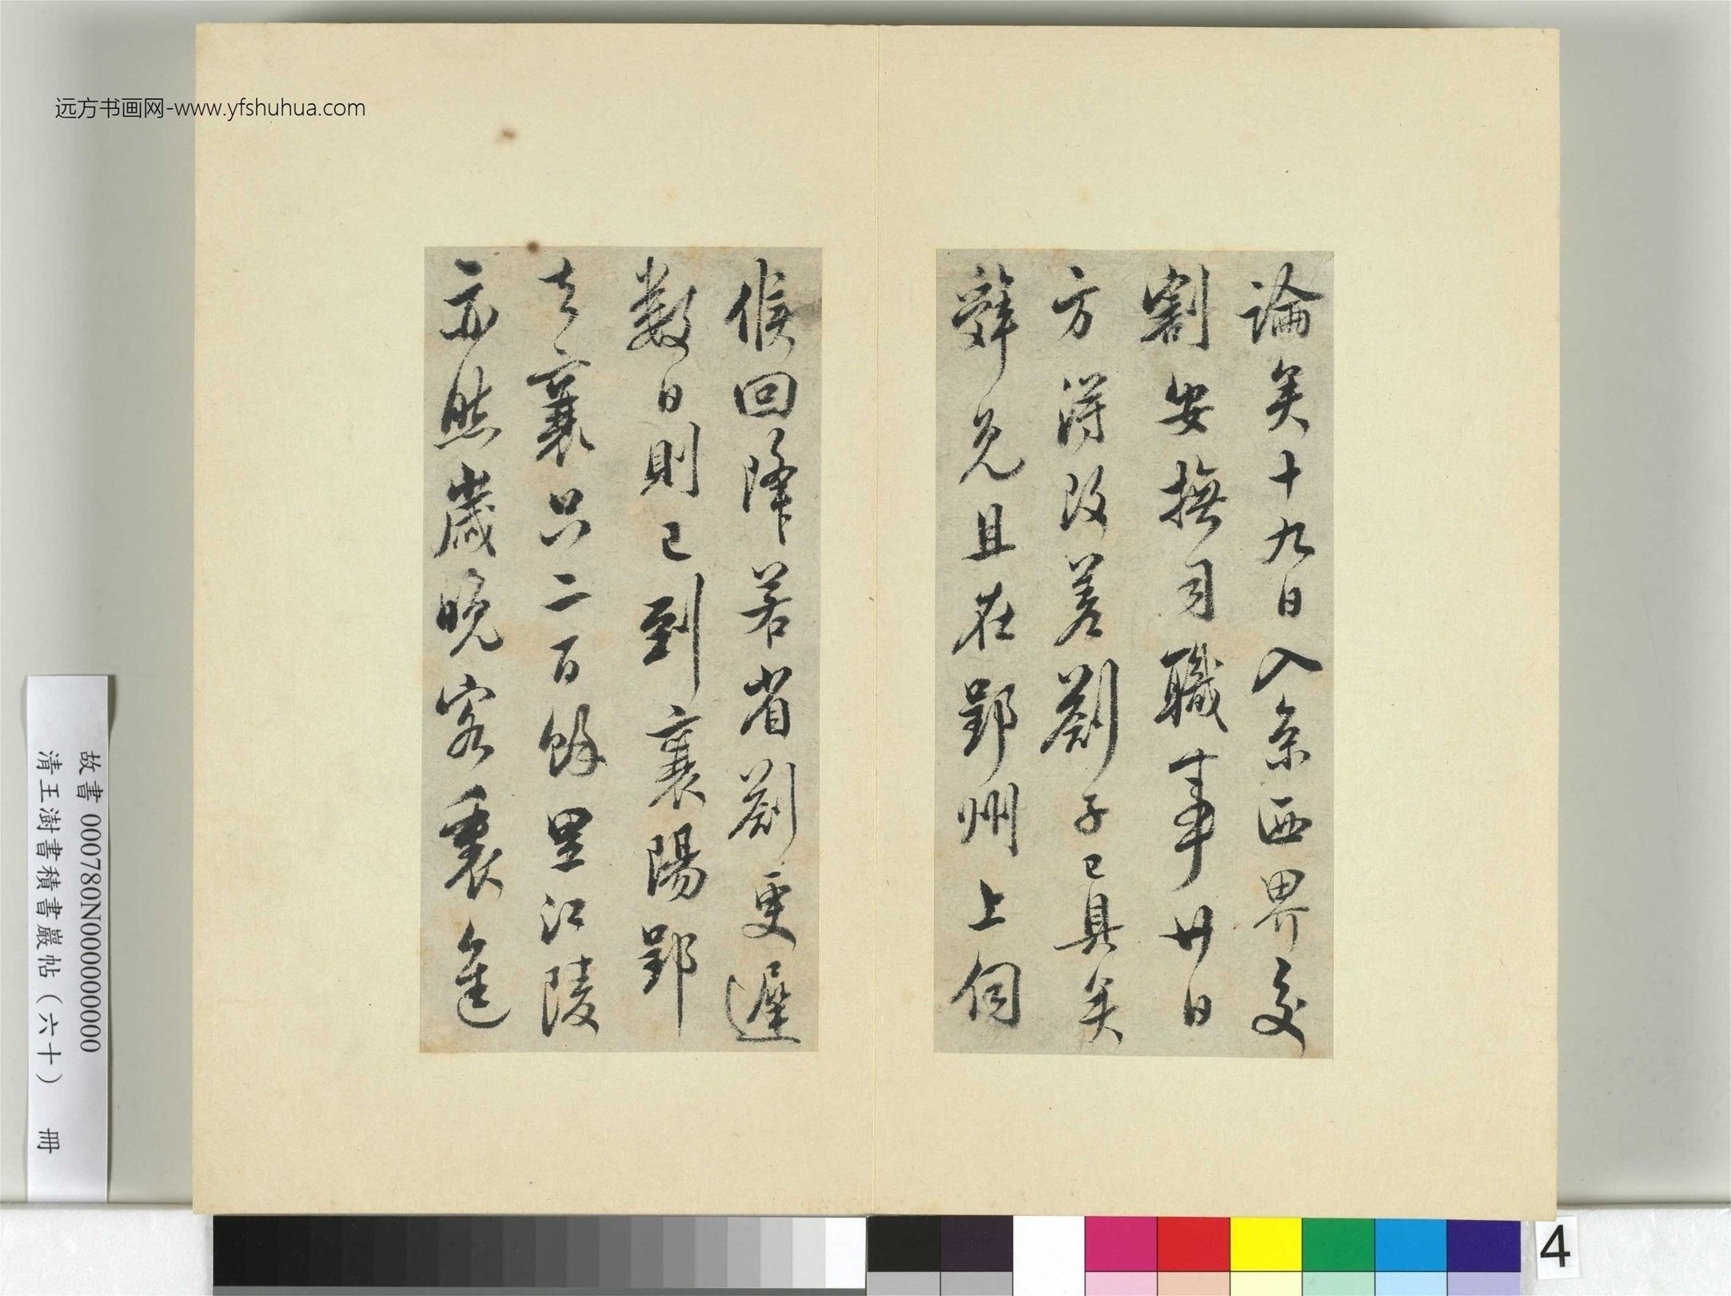 远方书画网-www.yfshuhua.com
論矣十九日入京西界交
割安撫司職事廿日
方得改差劄子已具奏
辭免且在郢州上伺
候回降若省劄更遲
數日則已到襄陽郢
去襄只二百餘里江陵
亦然歲晚客裏進
故書 000780N000000000
清王澍書積書巖帖(六十) 冊
4